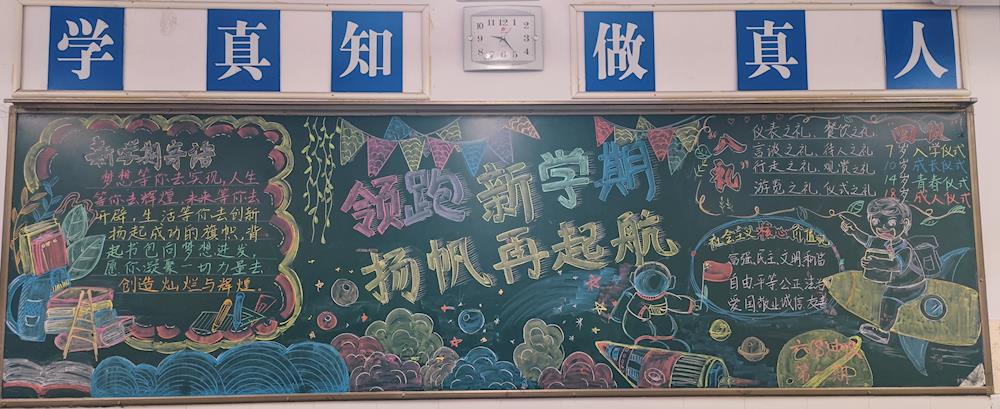 学真知
做真人
新学期寄语
梦想等你去实现,人生
等你去辉煌,未来等你去
开辟,生活等你去创新
扬起成功的旗帜,背
起书包同梦想进发,
愿你凝聚一切力量去
创造灿烂与辉煌。
领跑新学期
扬帆再起航
"八礼"
仪表之礼、餐饮之礼
言谈之礼、待人之礼
行走之礼、观赏之礼
游览之礼、仪式之礼
四仪
7岁入学仪式
10岁成长仪式
14岁青春仪式
18岁成人仪式
社会主义核心价值观
富强民主文明和谐
自由平等公正法治
爱国敬业诚信友善